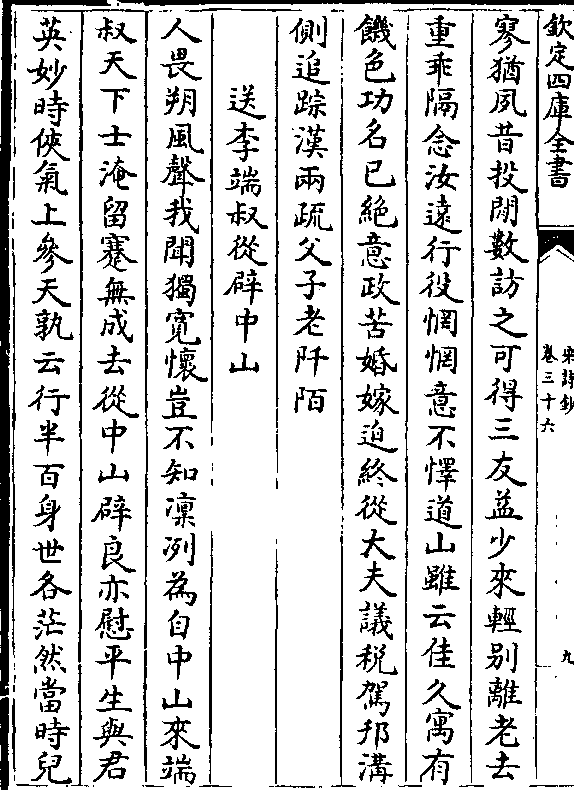 欽定四庫全書
宋詩鈔
卷三十六
九
寥猶夙昔投閒數訪之可得三友益少來輕别離老去
重乖隔念汝遠行役惘惘意不懌道山雖云佳久寓有
饑色功名已絶意政苦婚嫁迫終從大夫議税駕邗溝
側追踪漢兩疏父子老阡陌
送李端叔從辟中山
人畏朔風聲我聞獨寛懷豈不知凜冽為自中山來端
叔天下士淹留蹇無成去從中山辟良亦慰平生與君
英妙時俠氣上參天孰云行半百身世各茫然當時兒